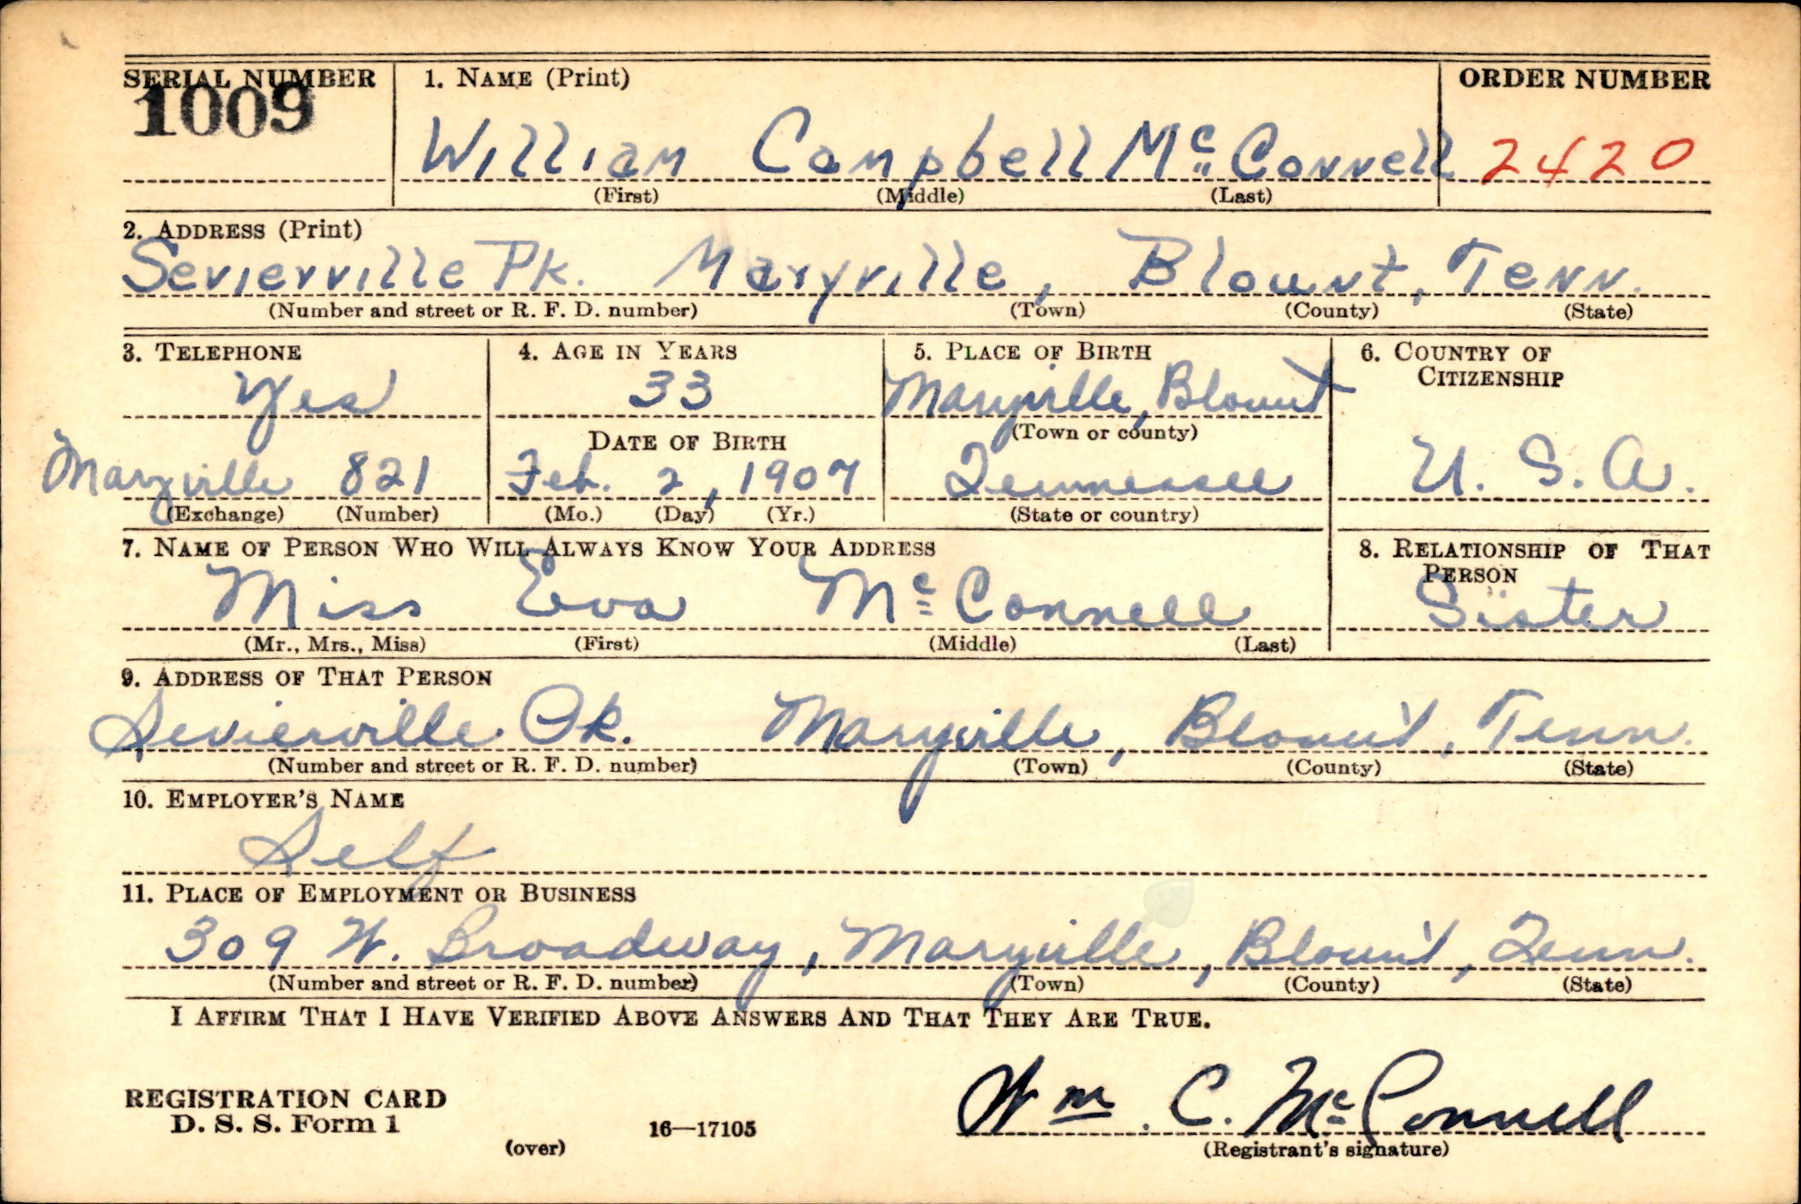 SERIAL NUMBER 1. NAME (Print) ORDER NUMBER
1009
William Campbell McConnell 2420
(First) (Middle) (Last)
2. ADDRESS (Print)
Sevierville Pk. Maryville, Blount, Tenn.
(Number and street or R. F. D. number) (Town) (County) (State)
3. TELEPHONE 4. AGE IN YEARS 5. PLACE OF BIRTH 6. COUNTRY OF
CITIZENSHIP
Yes 33 Maryville, Blount
DATE OF BIRTH (Town or county)
Maryville 821 Feb. 2, 1907 Tennessee U. S. A.
(Exchange) (Number) (Mo.) (Day) (Yr.) (State or country)
7. NAME OF PERSON WHO WILL ALWAYS KNOW YOUR ADDRESS 8. RELATIONSHIP OF THAT
PERSON
Miss Eva McConnell Sister
(Mr., Mrs., Miss) (First) (Middle) (Last)
9. ADDRESS OF THAT PERSON
Sevierville Pk. Maryville, Blount, Tenn.
(Number and street or R. F. D. number) (Town) (County) (State)
10. EMPLOYER'S NAME
Self
11. PLACE OF EMPLOYMENT OR BUSINESS
309 W. Broadway, Maryville, Blount, Tenn.
(Number and street or R. F. D. number) (Town) (County) (State)
I AFFIRM THAT I HAVE VERIFIED ABOVE ANSWERS AND THAT THEY ARE TRUE.
REGISTRATION CARD
D. S. S. Form 1
Wm. C. McConnell
(over) 16—17105 (Registrant's signature)